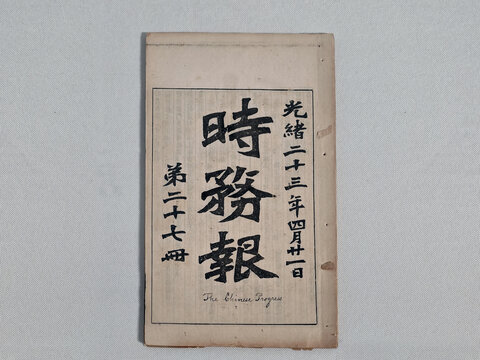 光緒二十三年四月廿一日
時務報
第二十七冊
The Chinese Progress